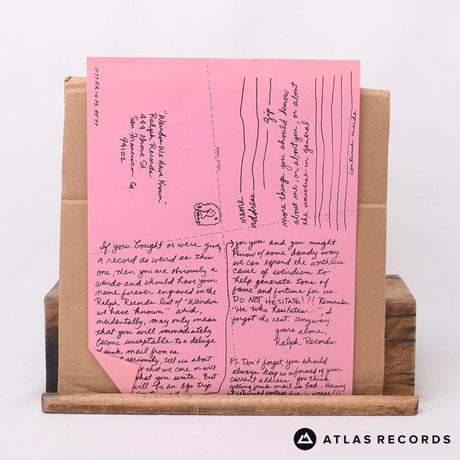 "Weirdos We Have Known"
Ralph Records
444 Grove St.
San Francisco Ca.
94102
name
address
Zip
more things you should know
about me or about you, or about
the universe in general.
continued inside
If you bought or were given
a record as weird as this
one, then you are obviously a
weirdo and should have your
name forever engraved on the
Ralph Records list of "Weirdos
we have known" which,
incidentally, may only mean
that you will immediately
become susceptable to a deluge
junk mail from us.
seriously, tell us about
what we care or will
what you write. But
will be an ego trip
for you and you might
know of some dandy way
we can expand the worthless
cause of weirdism to
help generate tons of
fame and fortune for us.
DO NOT HESITATE!!! Remember
"He who hesitates..." I
forgot the rest. anyway.
yours alone,
Ralph Records
P.S. Don't forget, you should
always keep us informed of your
current address. you think
getting junk mail is bad. Having
it returned postage due is worse!!!
ATLAS RECORDS